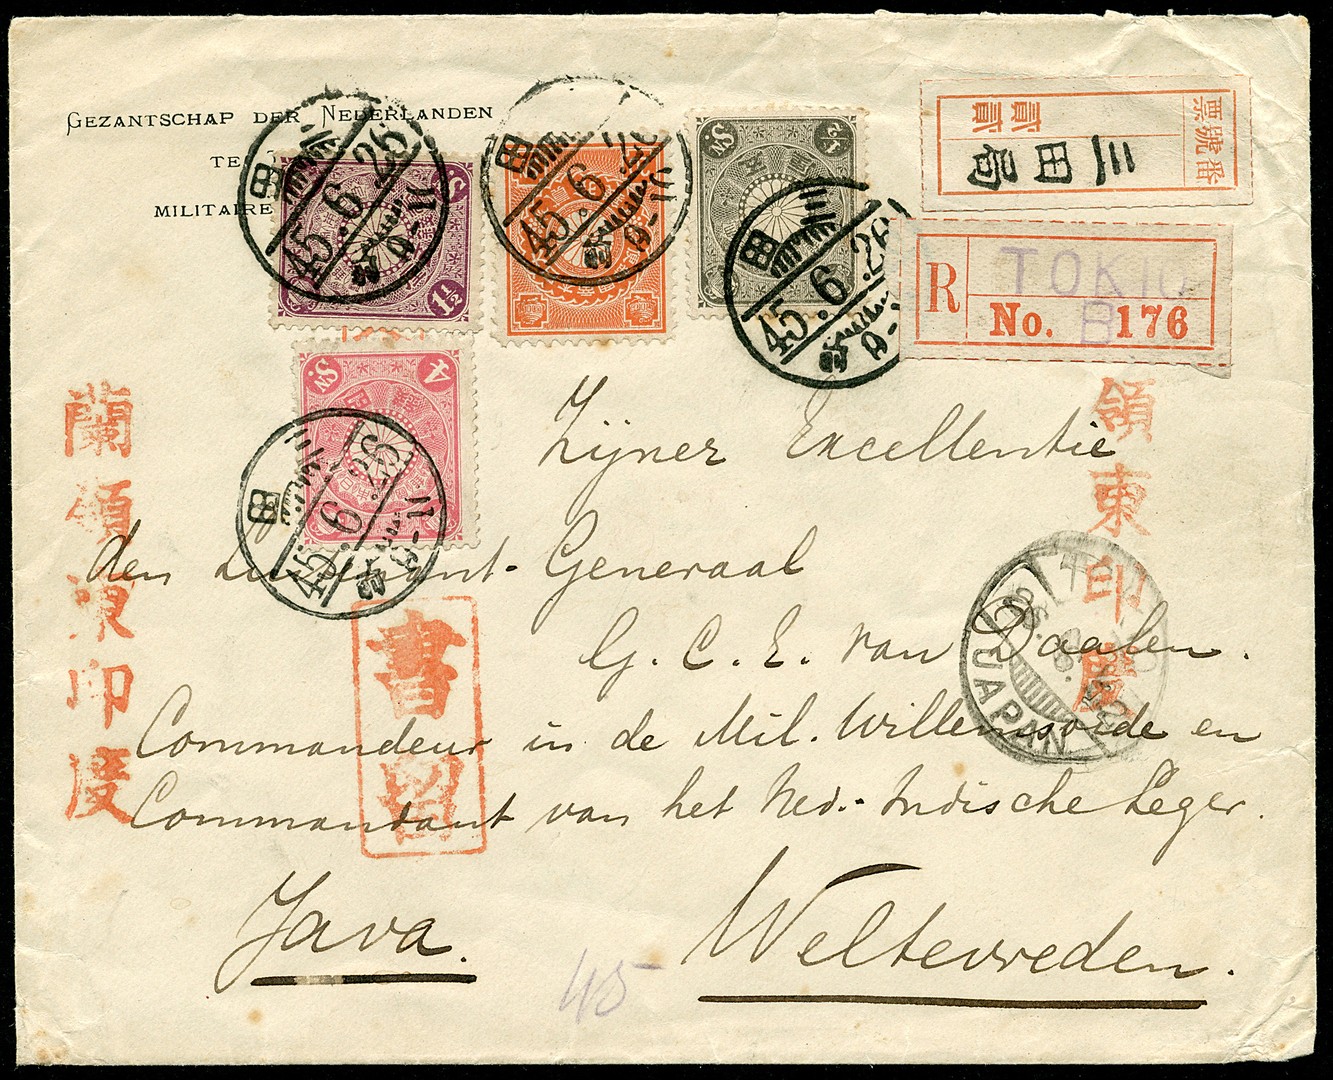 GEZANTSCHAP DER NEDERLANDEN
TE
MILITAIRE
1½
½
Sn.
4
Sn.
三田
45.6.26
三田
45.6.26
三田
45.6.26
三田
45.6.26
票號番
三田局
貳貳
貳貳
R
TOKIO
B
No. 176
蘭領東印度
領東印度
書留
JAPAN
Zijner Excellentie
den Luitenant-Generaal
G. C. E. van Daalen.
Commandeur in de Mil. Willemsorde en
Commandant van het Ned.-Indische Leger.
Java.
Weltevreden.
45